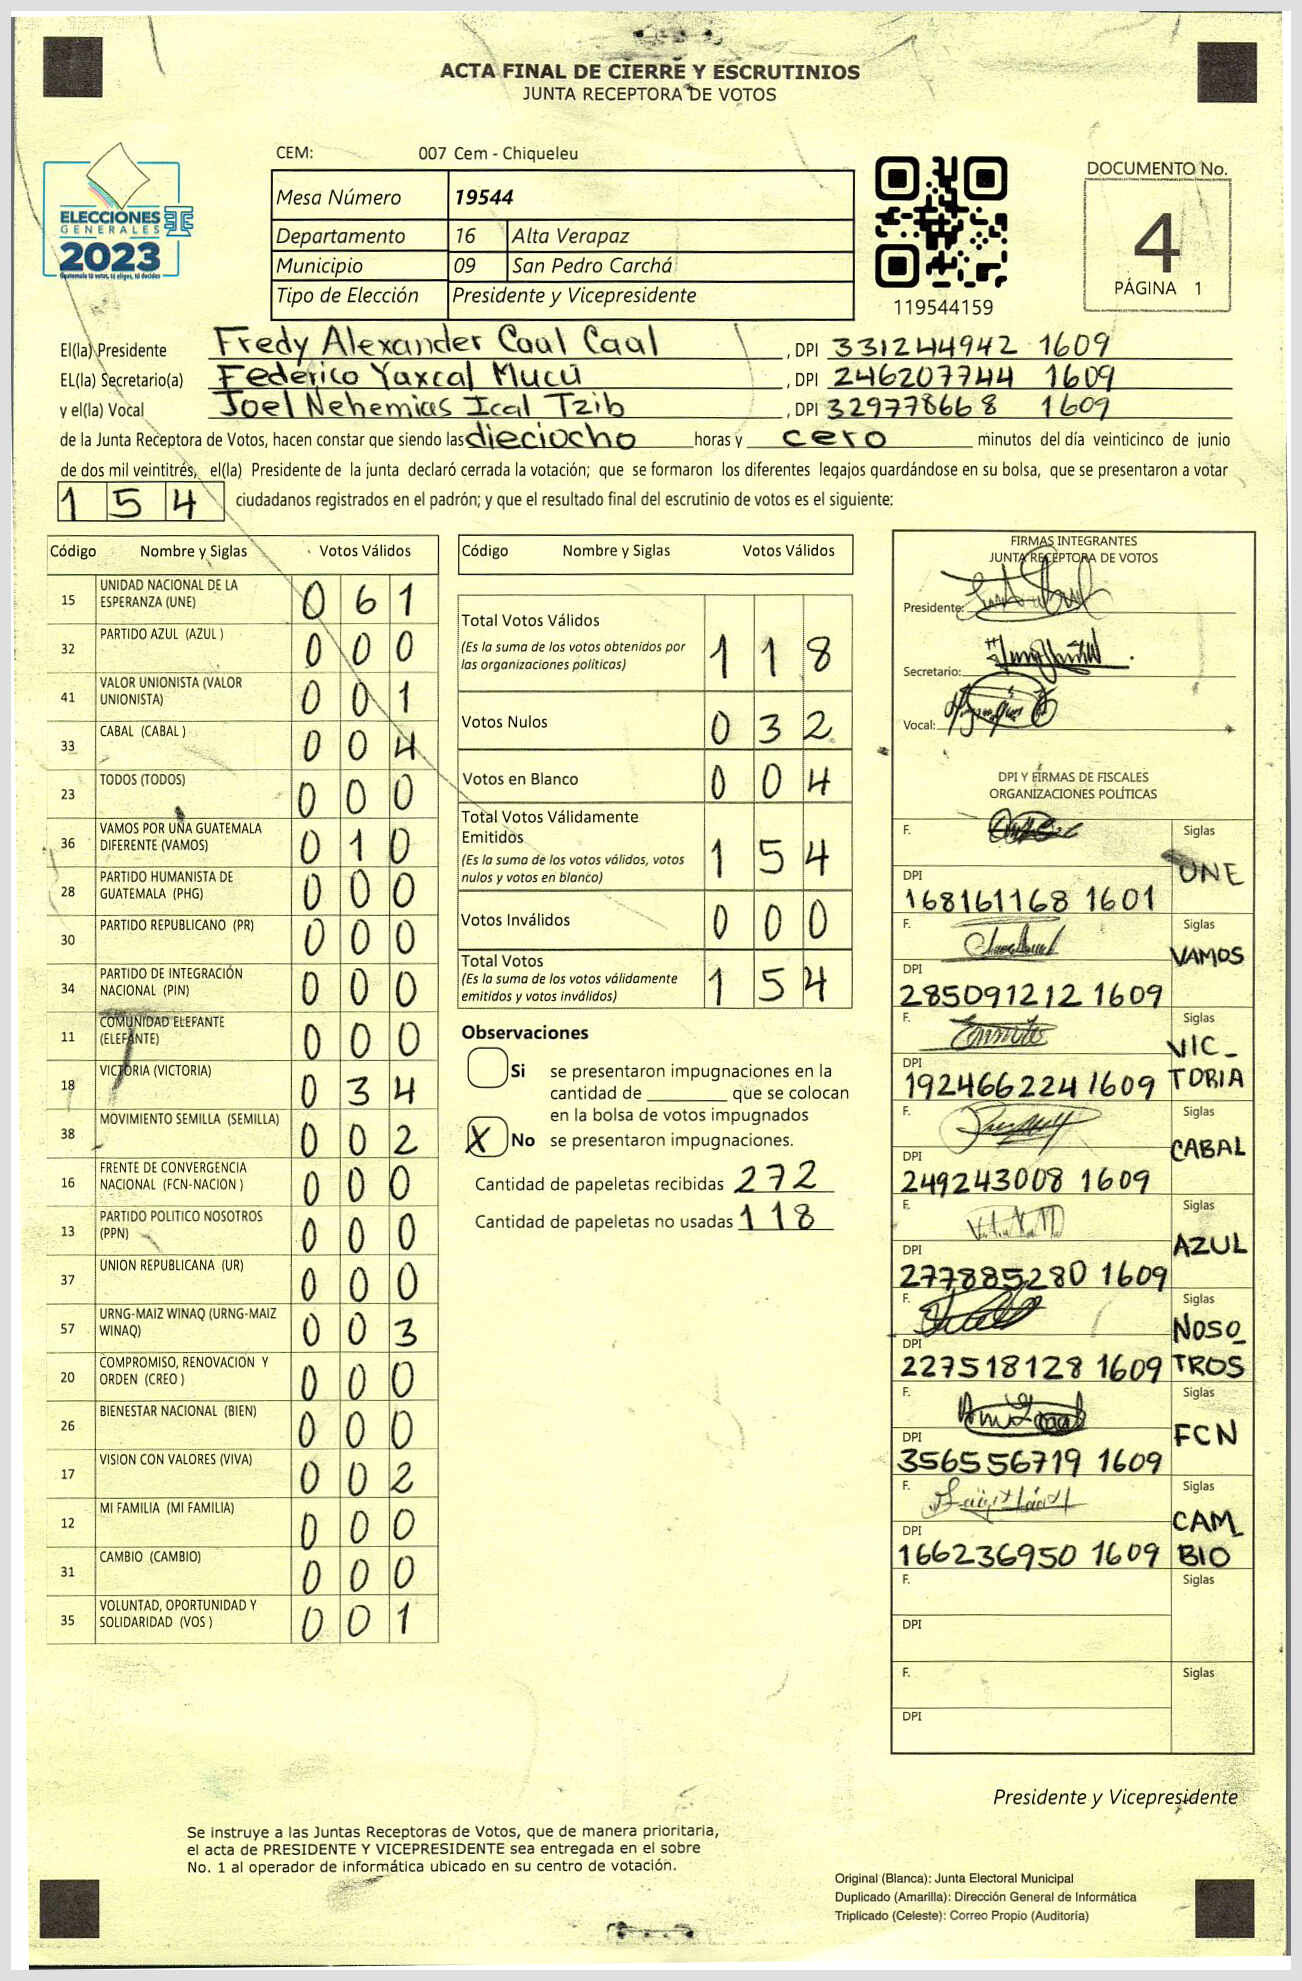 ACTA FINAL DE CIERRE Y ESCRUTINIOS
JUNTA RECEPTORA DE VOTOS
ELECCIONES
GENERALES
2023
Guatemala tú votas, tú eliges, tú decides
CEM: 007 Cem - Chiqueleu
Mesa Número 19544
Departamento 16 Alta Verapaz
Municipio 09 San Pedro Carchá
Tipo de Elección Presidente y Vicepresidente
119544159
DOCUMENTO No.
4
PÁGINA 1
El(la) Presidente Fredy Alexander Caal Caal , DPI 331244942 1609
EL(la) Secretario(a) Federico Yaxcal Mucú , DPI 246207744 1609
y el(la) Vocal Joel Nehemias Ical Tzib , DPI 329778668 1609
de la Junta Receptora de Votos, hacen constar que siendo las dieciocho horas y cero minutos del día veinticinco de junio
de dos mil veintitrés, el(la) Presidente de la junta declaró cerrada la votación; que se formaron los diferentes legajos guardándose en su bolsa, que se presentaron a votar
154 ciudadanos registrados en el padrón; y que el resultado final del escrutinio de votos es el siguiente:
Código Nombre y Siglas Votos Válidos
15 UNIDAD NACIONAL DE LA ESPERANZA (UNE) 0 6 1
32 PARTIDO AZUL (AZUL ) 0 0 0
41 VALOR UNIONISTA (VALOR UNIONISTA) 0 0 1
33 CABAL (CABAL ) 0 0 4
23 TODOS (TODOS) 0 0 0
36 VAMOS POR UNA GUATEMALA DIFERENTE (VAMOS) 0 1 0
28 PARTIDO HUMANISTA DE GUATEMALA (PHG) 0 0 0
30 PARTIDO REPUBLICANO (PR) 0 0 0
34 PARTIDO DE INTEGRACIÓN NACIONAL (PIN) 0 0 0
11 COMUNIDAD ELEFANTE (ELEFANTE) 0 0 0
18 VICTORIA (VICTORIA) 0 3 4
38 MOVIMIENTO SEMILLA (SEMILLA) 0 0 2
16 FRENTE DE CONVERGENCIA NACIONAL (FCN-NACION ) 0 0 0
13 PARTIDO POLITICO NOSOTROS (PPN) 0 0 0
37 UNION REPUBLICANA (UR) 0 0 0
57 URNG-MAIZ WINAQ (URNG-MAIZ WINAQ) 0 0 3
20 COMPROMISO, RENOVACION Y ORDEN (CREO ) 0 0 0
26 BIENESTAR NACIONAL (BIEN) 0 0 0
17 VISION CON VALORES (VIVA) 0 0 2
12 MI FAMILIA (MI FAMILIA) 0 0 0
31 CAMBIO (CAMBIO) 0 0 0
35 VOLUNTAD, OPORTUNIDAD Y SOLIDARIDAD (VOS ) 0 0 1
Código Nombre y Siglas Votos Válidos
Total Votos Válidos
(Es la suma de los votos obtenidos por las organizaciones políticas) 1 1 8
Votos Nulos 0 3 2
Votos en Blanco 0 0 4
Total Votos Válidamente Emitidos
(Es la suma de los votos válidos, votos nulos y votos en blanco) 1 5 4
Votos Inválidos 0 0 0
Total Votos
(Es la suma de los votos válidamente emitidos y votos inválidos) 1 5 4
Observaciones
Si se presentaron impugnaciones en la
cantidad de ________ que se colocan
en la bolsa de votos impugnados
X No se presentaron impugnaciones.
Cantidad de papeletas recibidas 272
Cantidad de papeletas no usadas 118
FIRMAS INTEGRANTES
JUNTA RECEPTORA DE VOTOS
Presidente:
Secretario:
Vocal:
DPI Y FIRMAS DE FISCALES
ORGANIZACIONES POLÍTICAS
F. Siglas UNE
DPI 168161168 1601
F. Siglas VAMOS
DPI 285091212 1609
F. Siglas VIC-
TORIA
DPI 192466224 1609
F. Siglas CABAL
DPI 249243008 1609
F. Siglas AZUL
DPI 277885280 1609
F. Siglas NOSO_
TROS
DPI 227518128 1609
F. Siglas FCN
DPI 356556719 1609
F. Siglas CAM_
BIO
DPI 166236950 1609
F. Siglas
DPI
F. Siglas
DPI
Presidente y Vicepresidente
Se instruye a las Juntas Receptoras de Votos, que de manera prioritaria,
el acta de PRESIDENTE Y VICEPRESIDENTE sea entregada en el sobre
No. 1 al operador de informática ubicado en su centro de votación.
Original (Blanca): Junta Electoral Municipal
Duplicado (Amarilla): Dirección General de Informática
Triplicado (Celeste): Correo Propio (Auditoría)